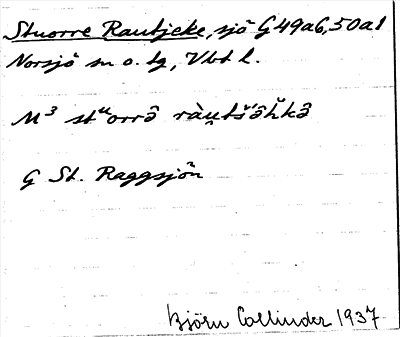 Stuorre Rautjeke, sjö G 49a6, 50a1
Norsjö sn o. tg, Vbt l.
M³ stᵘorrɘ̂ ràu̯tš́ɘ̂h̆kɘ̂
G St. Raggsjön
Björn Collinder 1937